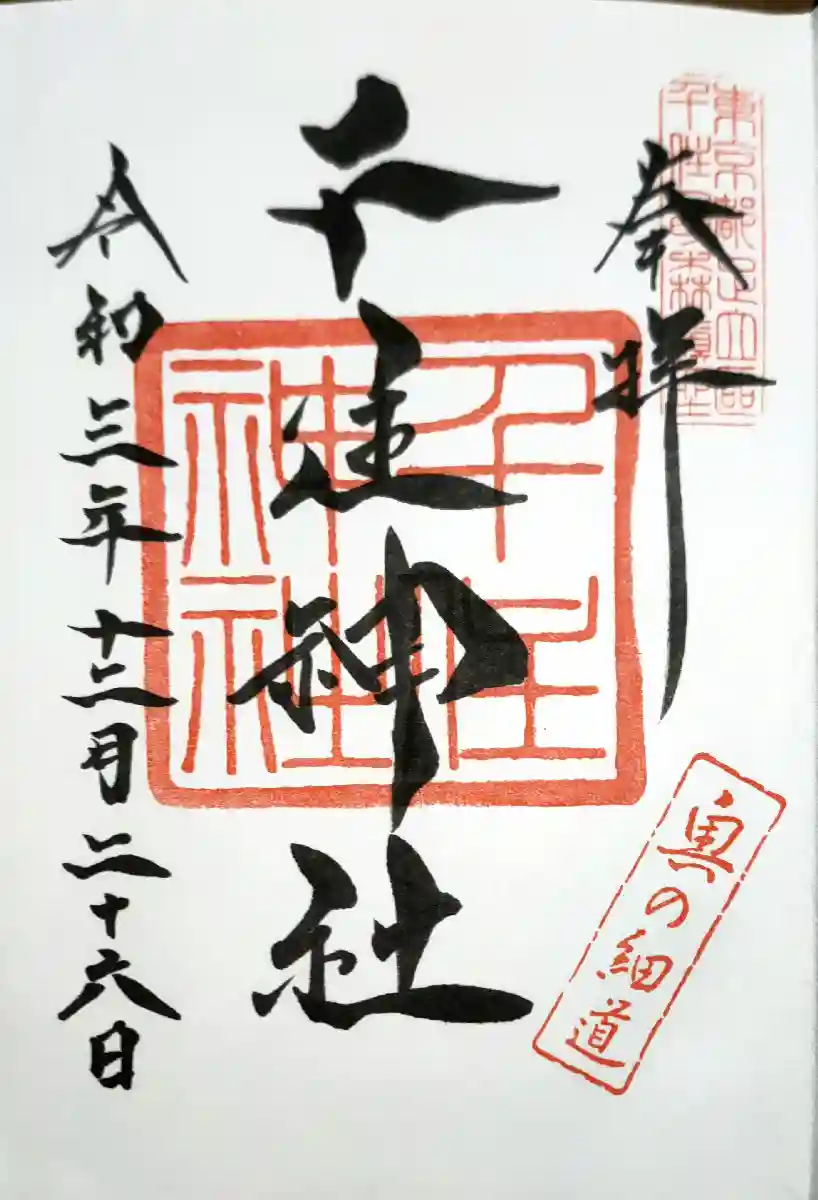 東京都足立区
千住最森鎮座
奉拝
千住神社
千住
神社
奥の細道
令和三年十二月二十六日